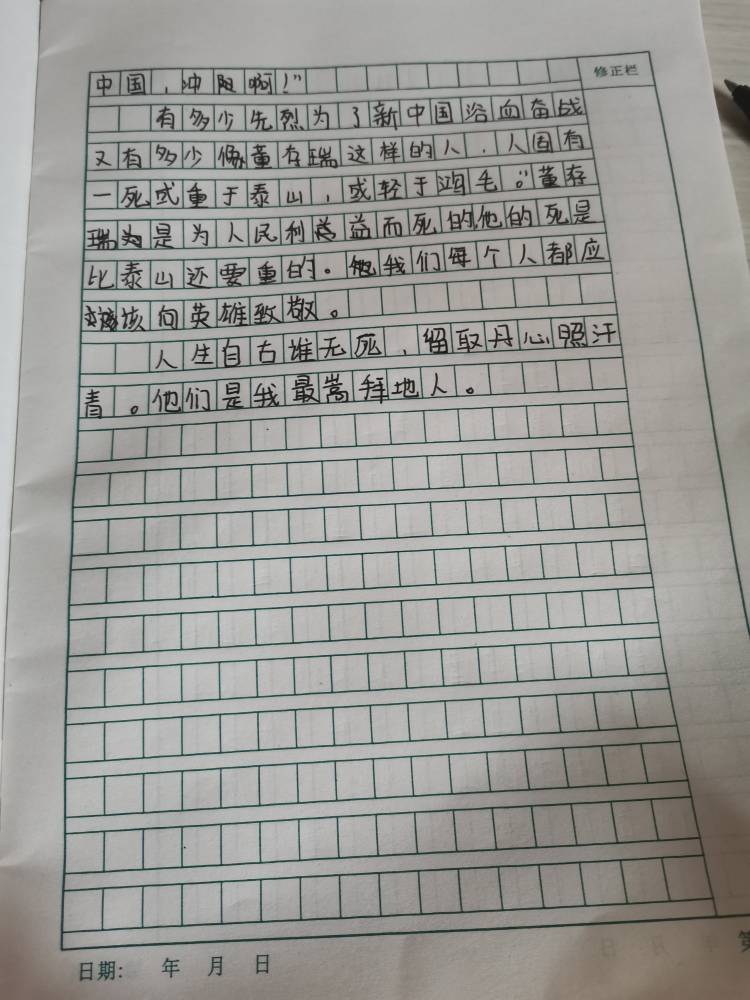 修正栏
中国，冲啊！”
有多少先烈为了新中国浴血奋战
又有多少像董存瑞这样的人，人固有
一死或重于泰山，或轻于鸿毛。”董存
瑞是为人民利益而死的他的死是
比泰山还要重的。我们每个人都应
该向英雄致敬。
人生自古谁无死，留取丹心照汗
青。他们是我最嵩拜地人。
日期： 年 月 日
第